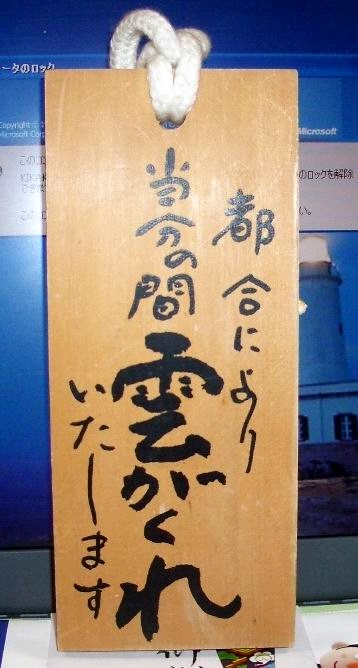 都合により
当分の間
雲がくれ
いたします
ータのロック
Copyright ©
Microsoft Corp
Microsoft
このコン
のロックを解除
できま
このコ
い。